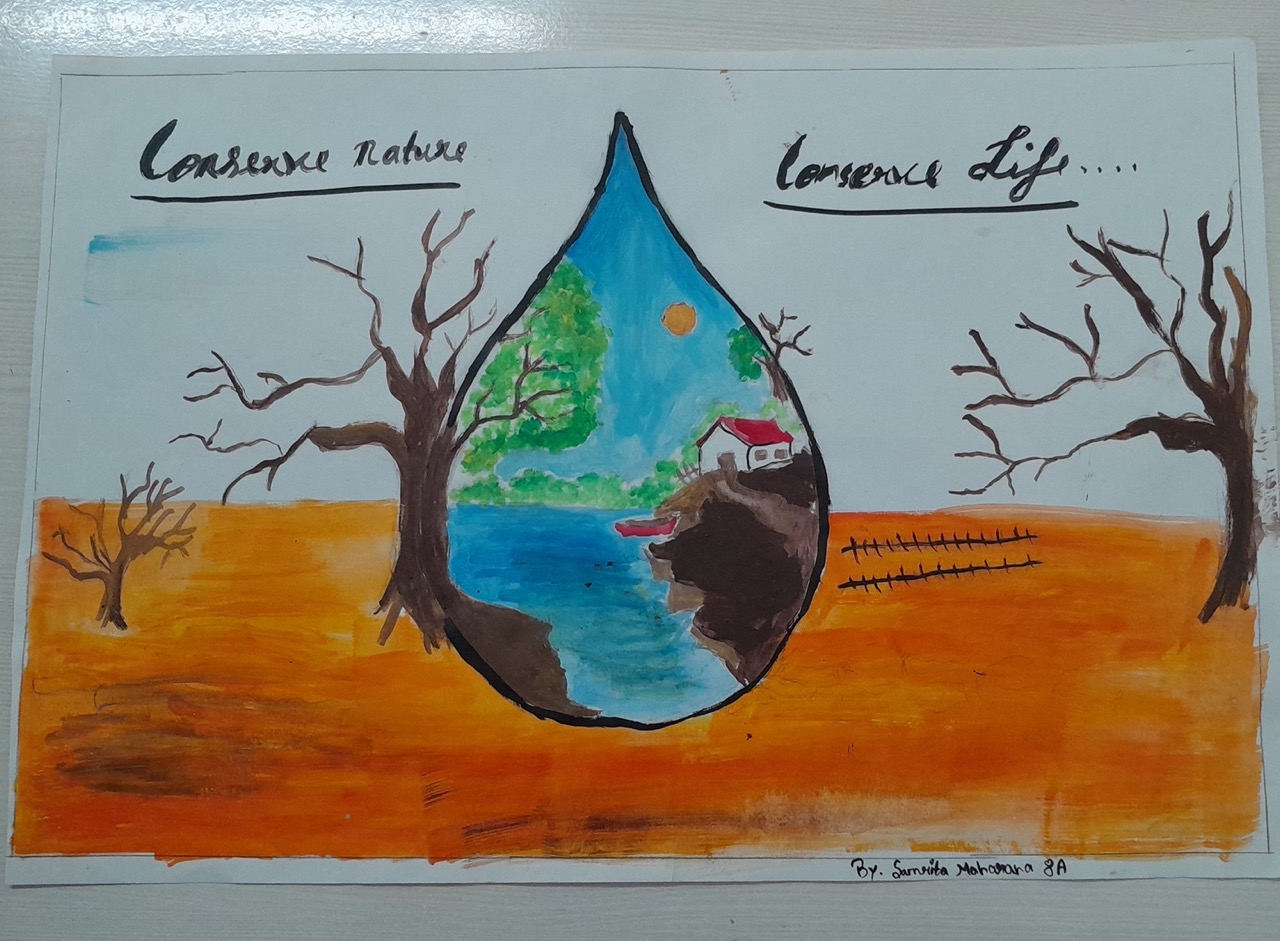 Conserve nature
Conserve Life....
By. Samrita Maharana 8A